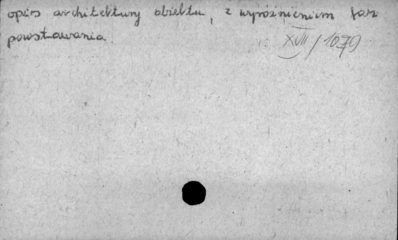 opis architektury obiektu, z wyróżnieniem faz
powstawania.
XVII / 1079